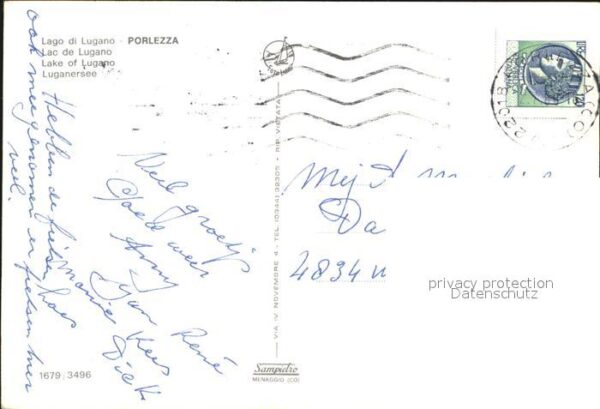 Lago di Lugano - PORLEZZA
Lac de Lugano
Lake of Lugano
Luganersee
Hebben de fietsen
ook meegenomen en fietsen hier
veel.
Veel groetjes
Anny
Jan René
Kees
Dick
Mej
Da
4834
privacy protection
Datenschutz
VIA IV NOVEMBRE 4 - TEL. (0344) 32305 - RIP. VIETATA
Sampietro
MENAGGIO (CO)
1679/3496
22018